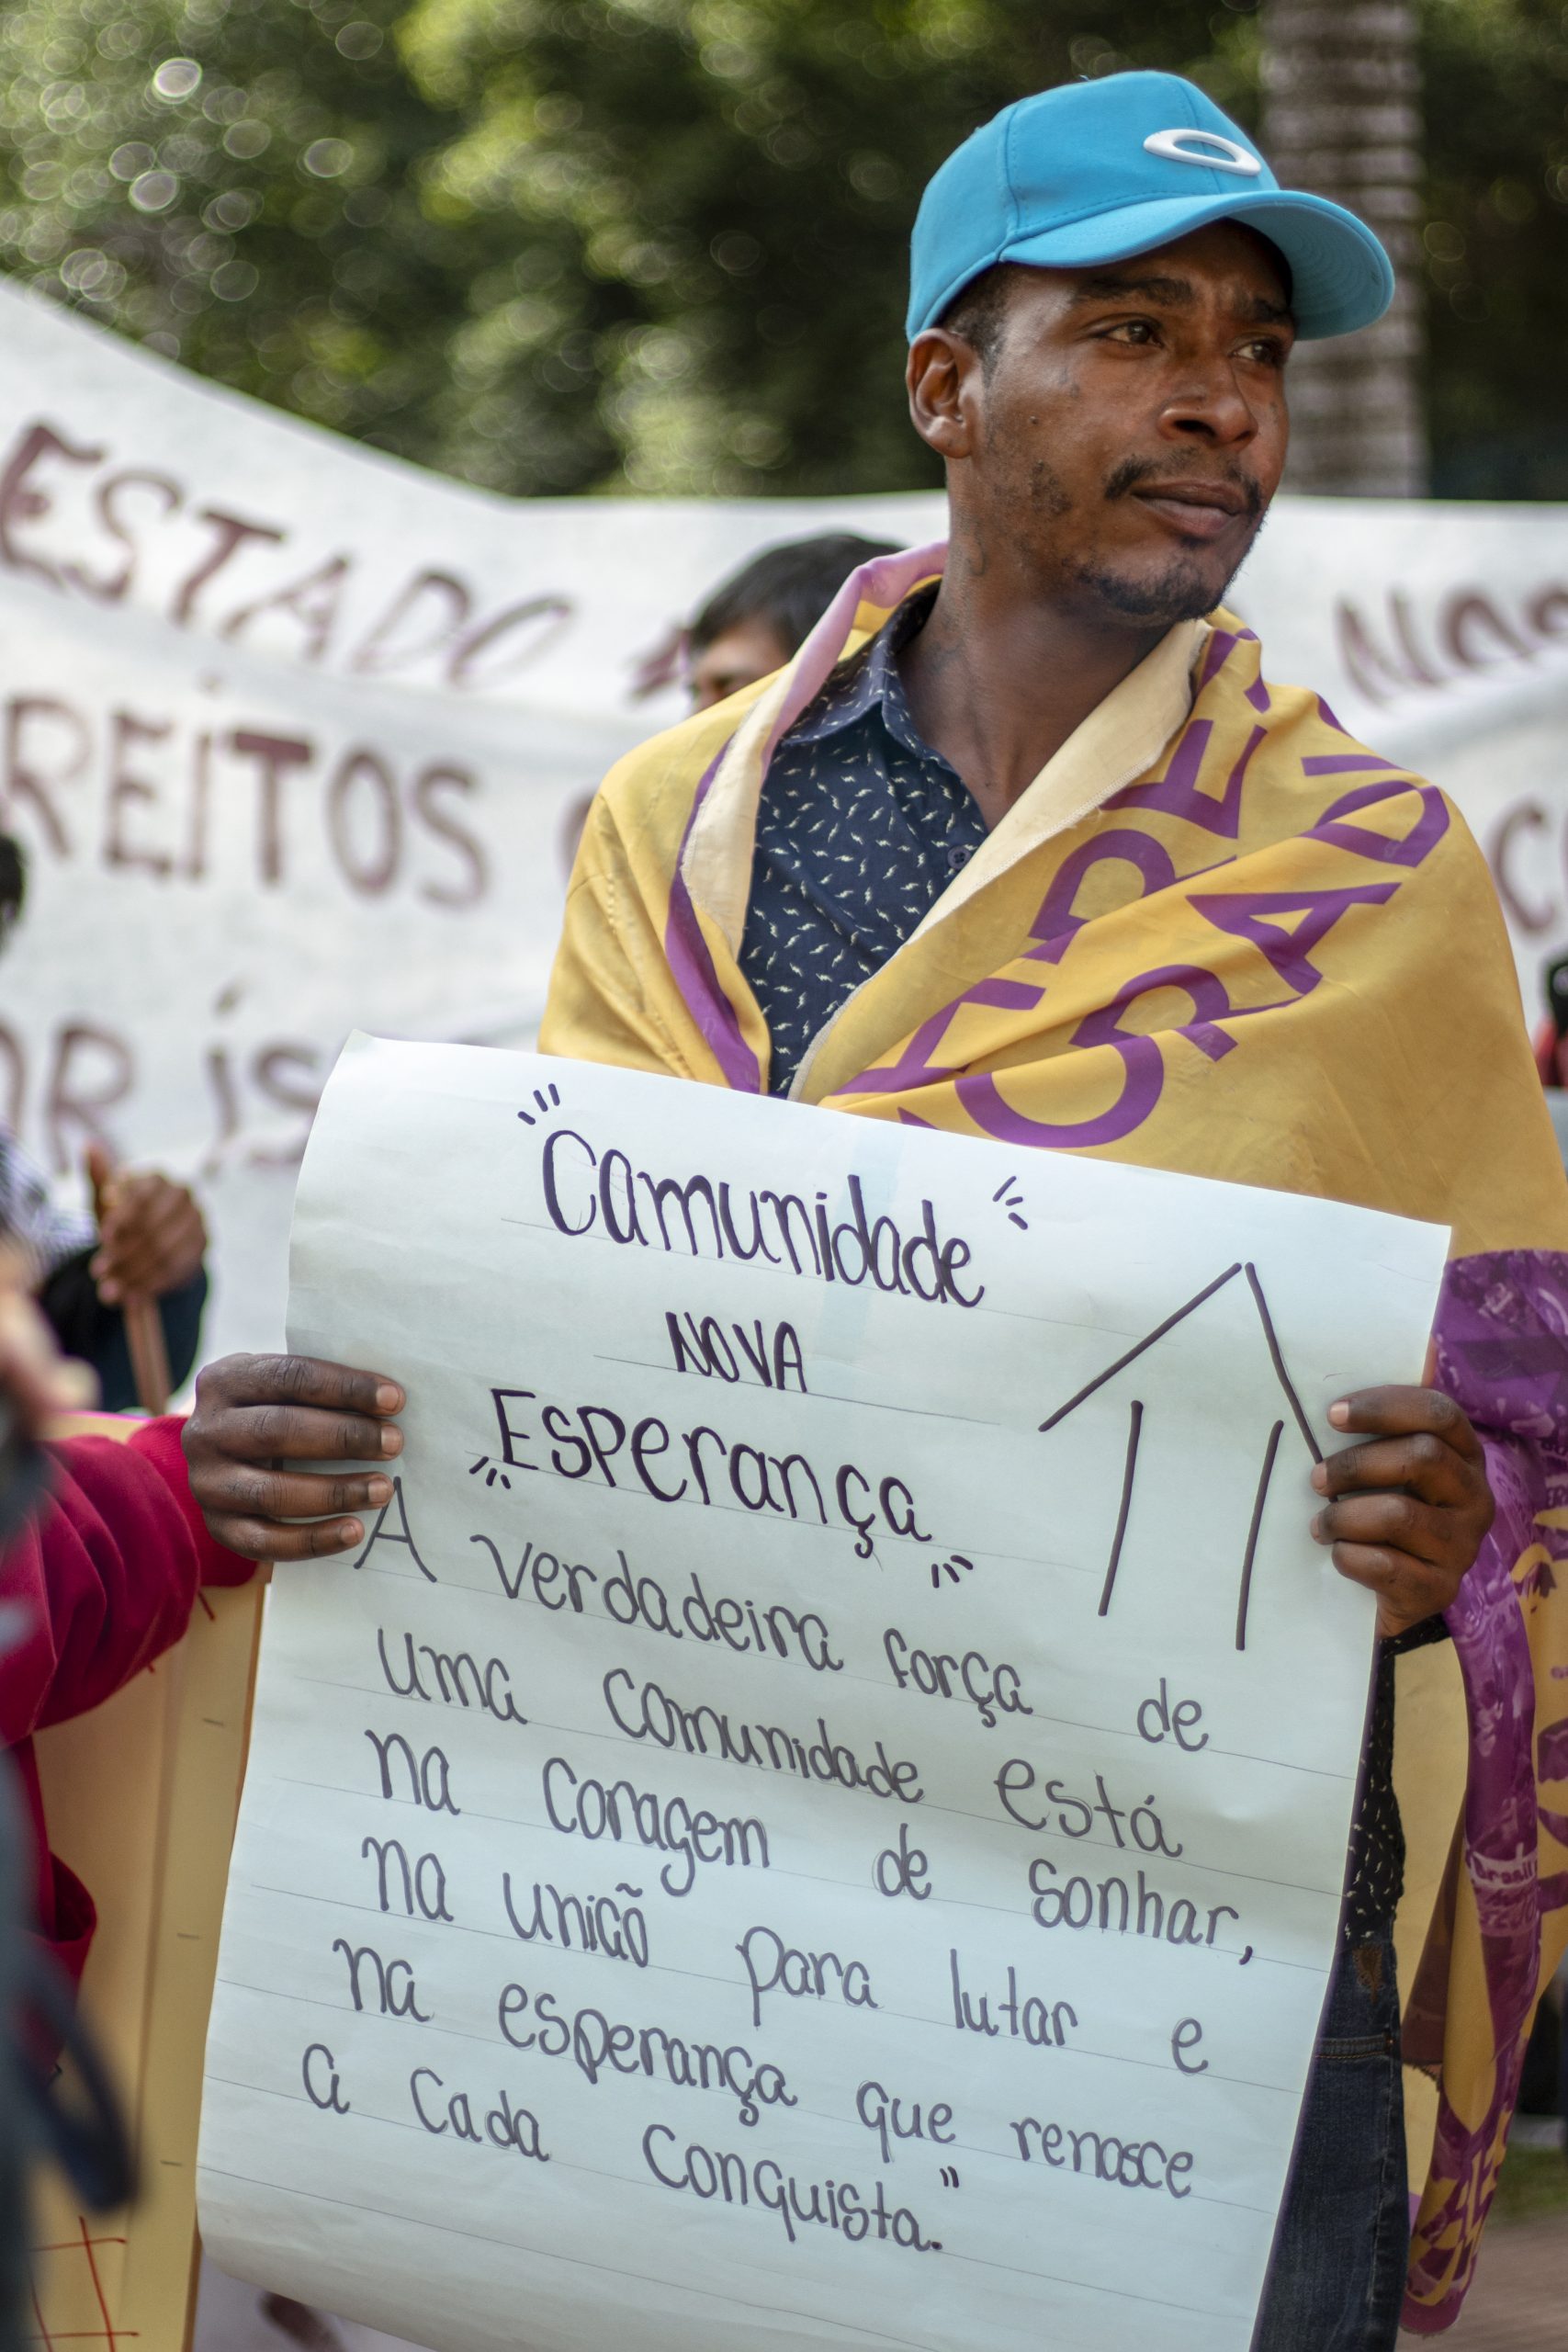 ESTADO
NOS
REITOS
OR IS
"Comunidade"
NOVA
"Esperança"
A verdadeira força de
uma comunidade está
na coragem de sonhar,
na união para lutar e
na esperança que renasce
a cada conquista."
Brasil